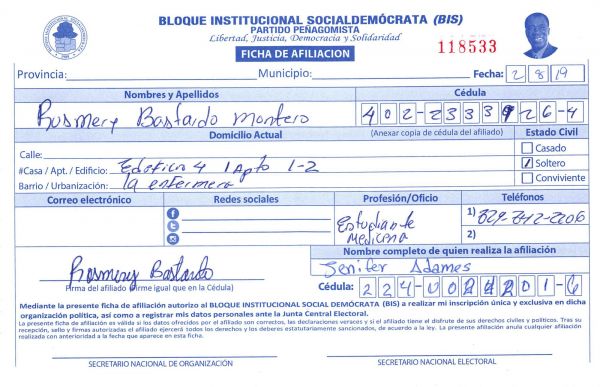 BLOQUE INSTITUCIONAL SOCIALDEMÓCRATA (BIS)
PARTIDO PEÑAGOMISTA
Libertad, Justicia, Democracia y Solidaridad
FICHA DE AFILIACION
118533
Provincia: Municipio: Fecha: 2 8 19
Nombres y Apellidos Cédula
Rusmery Bastardo Montero 402-2333926-4
Domicilio Actual (Anexar copia de cédula del afiliado) Estado Civil
Calle: Casado
#Casa / Apt. / Edificio: Edificio 4 Apto 1-2 Soltero
Barrio / Urbanización: la enfermera Conviviente
Correo electrónico Redes sociales Profesión/Oficio Teléfonos
Estudiante Medicina
1) 829-842-2206
2)
Nombre completo de quien realiza la afiliación
Rosmery Bastardo Jenifer Adames
Firma del afiliado (Firme igual que en la Cédula) Cédula: 224-0024201-6
Mediante la presente ficha de afiliación autorizo al BLOQUE INSTITUCIONAL SOCIAL DEMÓCRATA (BIS) a realizar mi inscripción única y exclusiva en dicha
organización política, así como a registrar mis datos personales ante la Junta Central Electoral.
La presente ficha de afiliación es válida si los datos ofrecidos por el afiliado son correctos, las declaraciones veraces y si el afiliado tiene el disfrute de sus derechos civiles y políticos. Tras su
recepción, sello y firmas autorizadas el afiliado ejercerá todos los derechos y los deberes estatutariamente sancionados, de acuerdo a la ley. La presente afiliación anula cualquier afiliación
realizada con anterioridad a la fecha que aparece en esta ficha.
SECRETARIO NACIONAL DE ORGANIZACIÓN SECRETARIO NACIONAL ELECTORAL